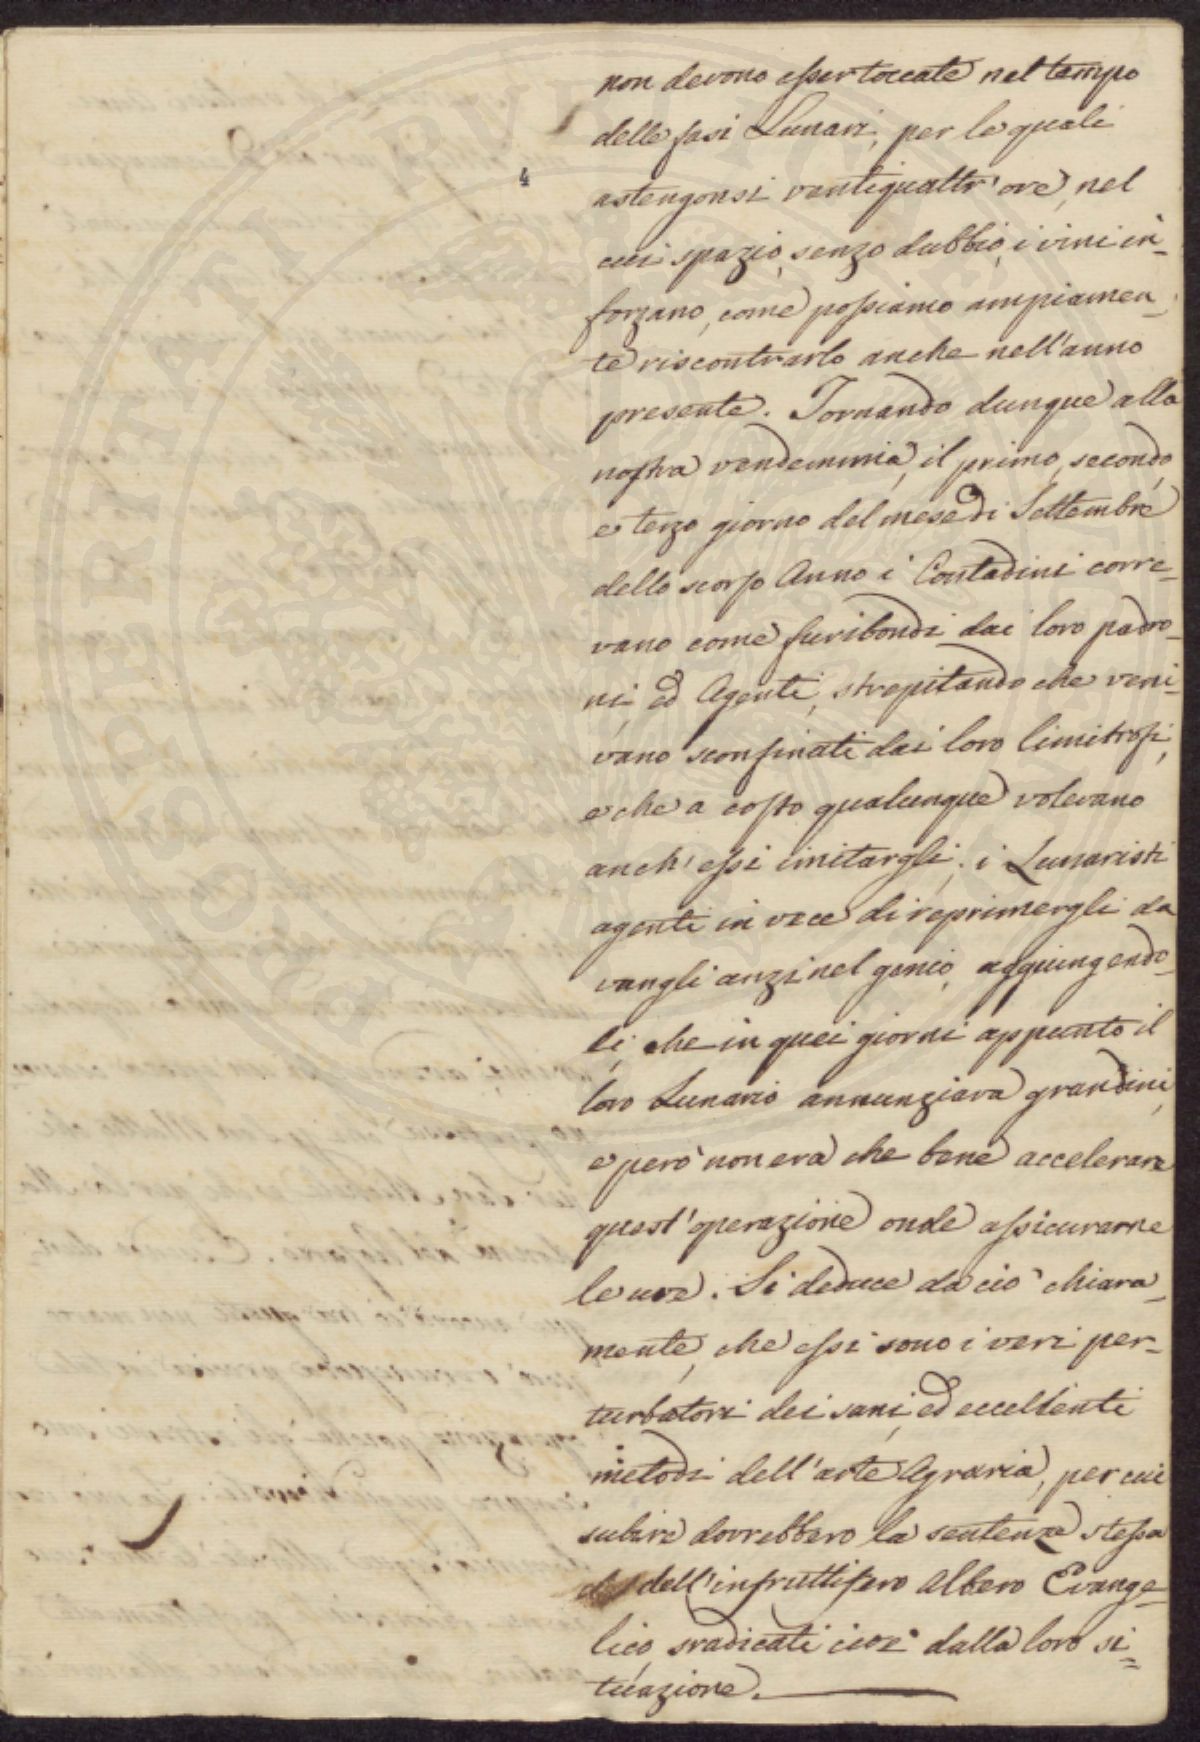 non devono esser toccate nel tempo
delle fasi Lunari, per le quali
4
astengonsi ventiquattr'ore, nel
cui spazio, senza dubbio, i vini in-
forzano, come possiamo ampiamen-
te riscontrarlo anche nell'anno
presente. Tornando dunque alla
nostra vendemmia, il primo, secondo,
e terzo giorno del mese di Settembre
dello scorso Anno i Contadini corre-
vano come furibondi dai loro padro-
ni, ed Agenti, strepitando che veni-
vano sconfinati dai loro limitrofi,
e che a costo qualunque volevano
anch'essi imitargli; i Lunaristi
agenti in vece di reprimergli da
vangli anzi nel genio, aggiungendo-
li, che in quei giorni appunto il
loro Lunario annunziava grandini,
e però non era che bene accelerare
quest'operazione onde assicurarne
le uve. Si deduce da ciò chiara-
mente, che essi sono i veri per-
turbatori dei sani, ed eccellenti
metodi dell'arte Agraria, per cui
subire dovrebbero la sentenza stessa
dell'infruttifero albero Evange-
lico, sradicati cioè dalla loro si=
tuazione.